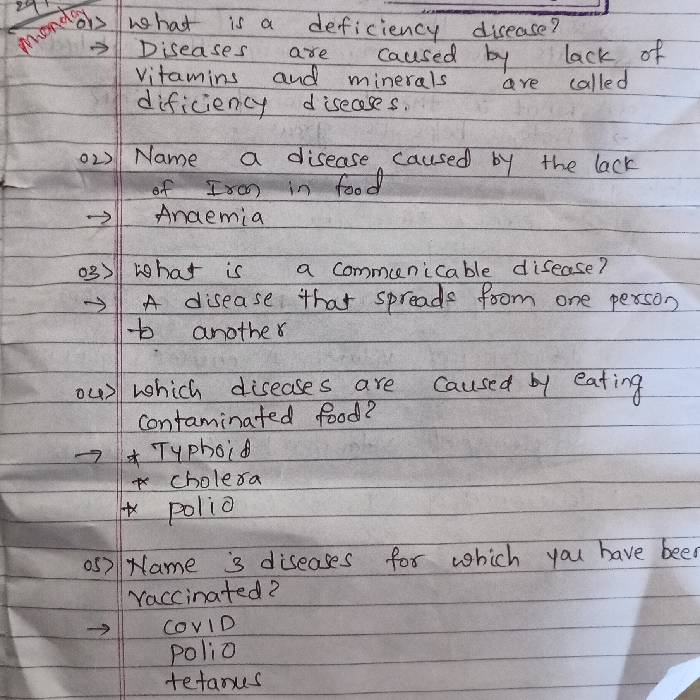 Monday
01> What is a deficiency disease?
→ Diseases are caused by lack of
vitamins and minerals are called
dificiency diseases.
02> Name a disease caused by the lack
of Iron in food
→ Anaemia
03> What is a communicable disease?
→ A disease that spreads from one person
to another
04> Which diseases are caused by eating
contaminated food?
→ * Typhoid
* cholera
* polio
05> Name 3 diseases for which you have been
vaccinated?
→ COVID
Polio
tetanus